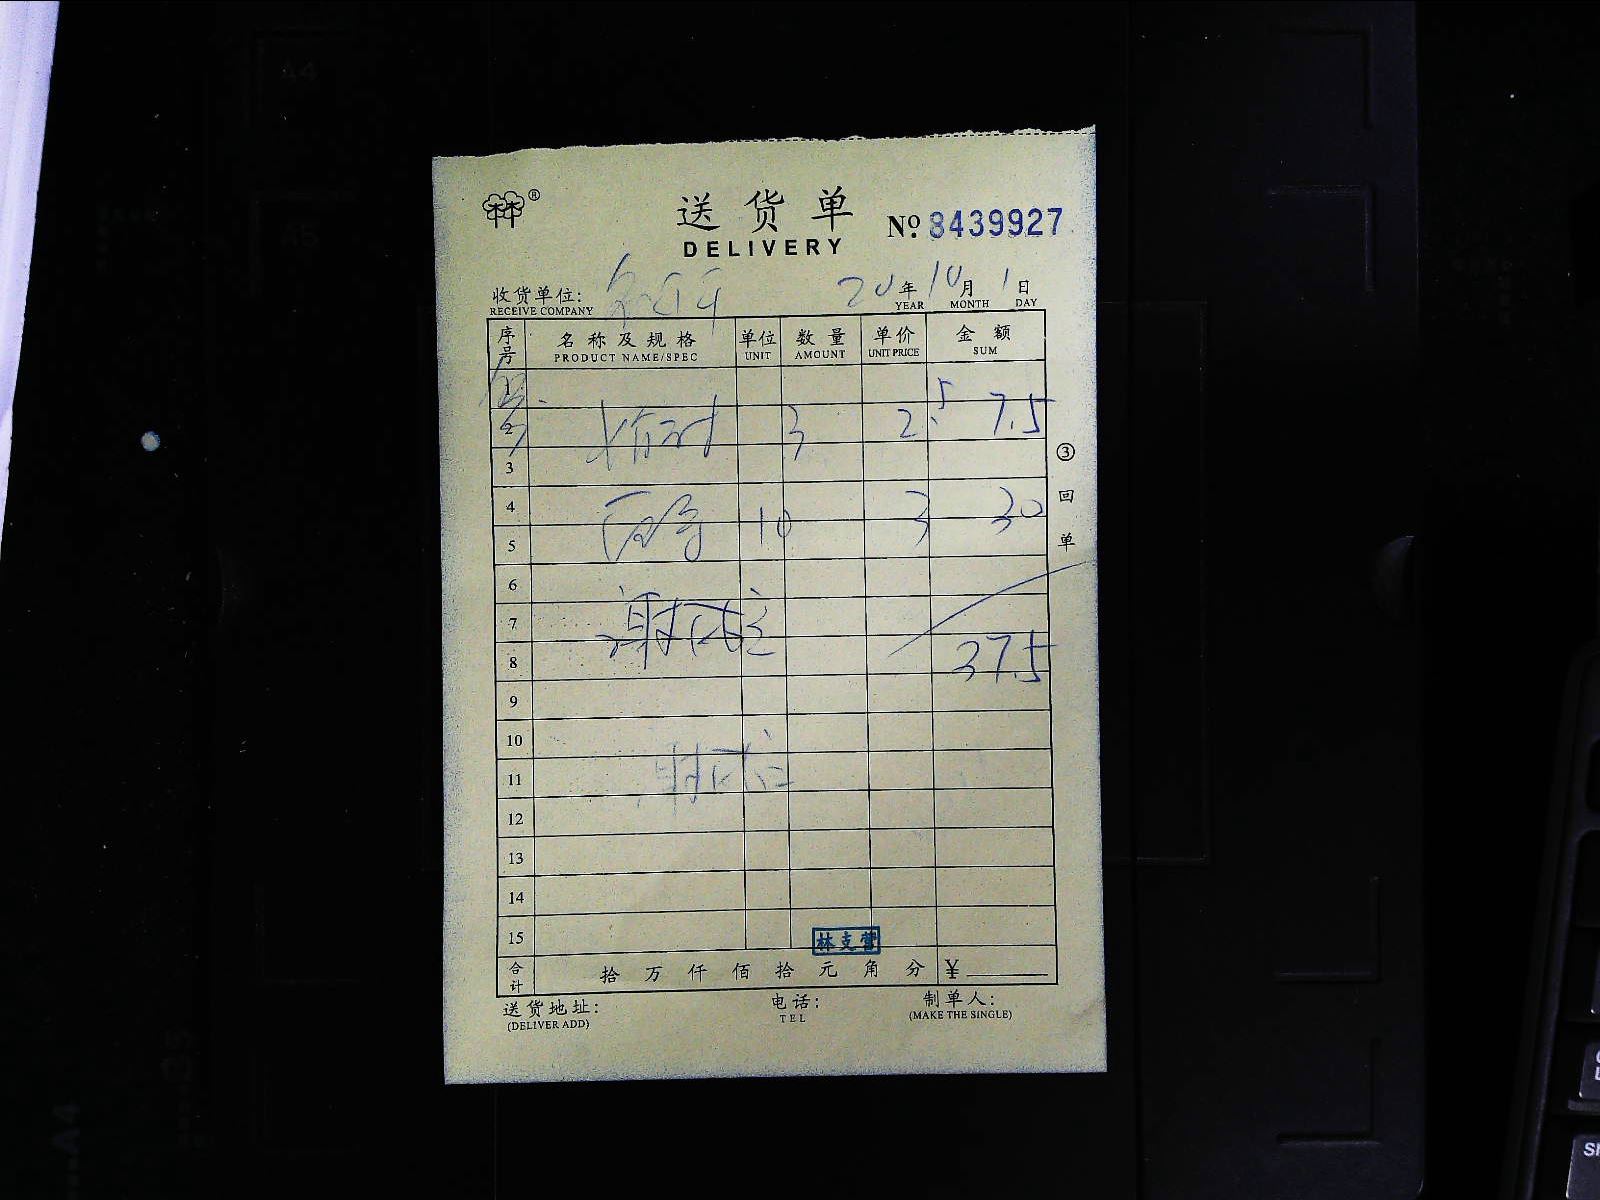 林®
送货单
DELIVERY
№ 8439927
收货单位:
RECEIVE COMPANY
20年10月1日
YEAR MONTH DAY
序号 名称及规格 单位 数量 单价 金额
PRODUCT NAME/SPEC UNIT AMOUNT UNIT PRICE SUM
1
2 3 2.5 7.5
3
4
5 10 3 30
6
7
8 37.5
9
10
11
12
13
14
15
林支营
合计 拾 万 仟 佰 拾 元 角 分 ¥
③回单
送货地址: 电话: 制单人:
(DELIVER ADD) TEL (MAKE THE SINGLE)
A4
A5
A4